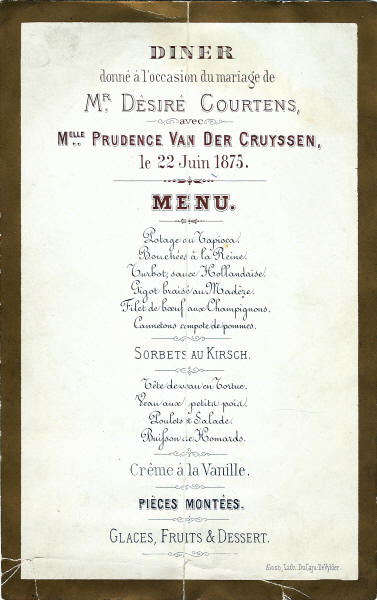 DINER
donné à l'occasion du mariage de
MR. DÉSIRÉ COURTENS,
avec
MELLE PRUDENCE VAN DER CRUYSSEN,
le 22 Juin 1875.
MENU.
Potage au Tapioca.
Bouchées à la Reine.
Turbot, sauce Hollandaise.
Gigot braisé au Madère.
Filet de bœuf aux Champignons.
Cannetons compote de pommes.
SORBETS AU KIRSCH.
Tête de veau en Tortue.
Veau aux petits pois.
Poulets & Salade.
Buisson de Homards.
Crême à la Vanille.
PIÈCES MONTÉES.
GLACES, FRUITS & DESSERT.
Lith.